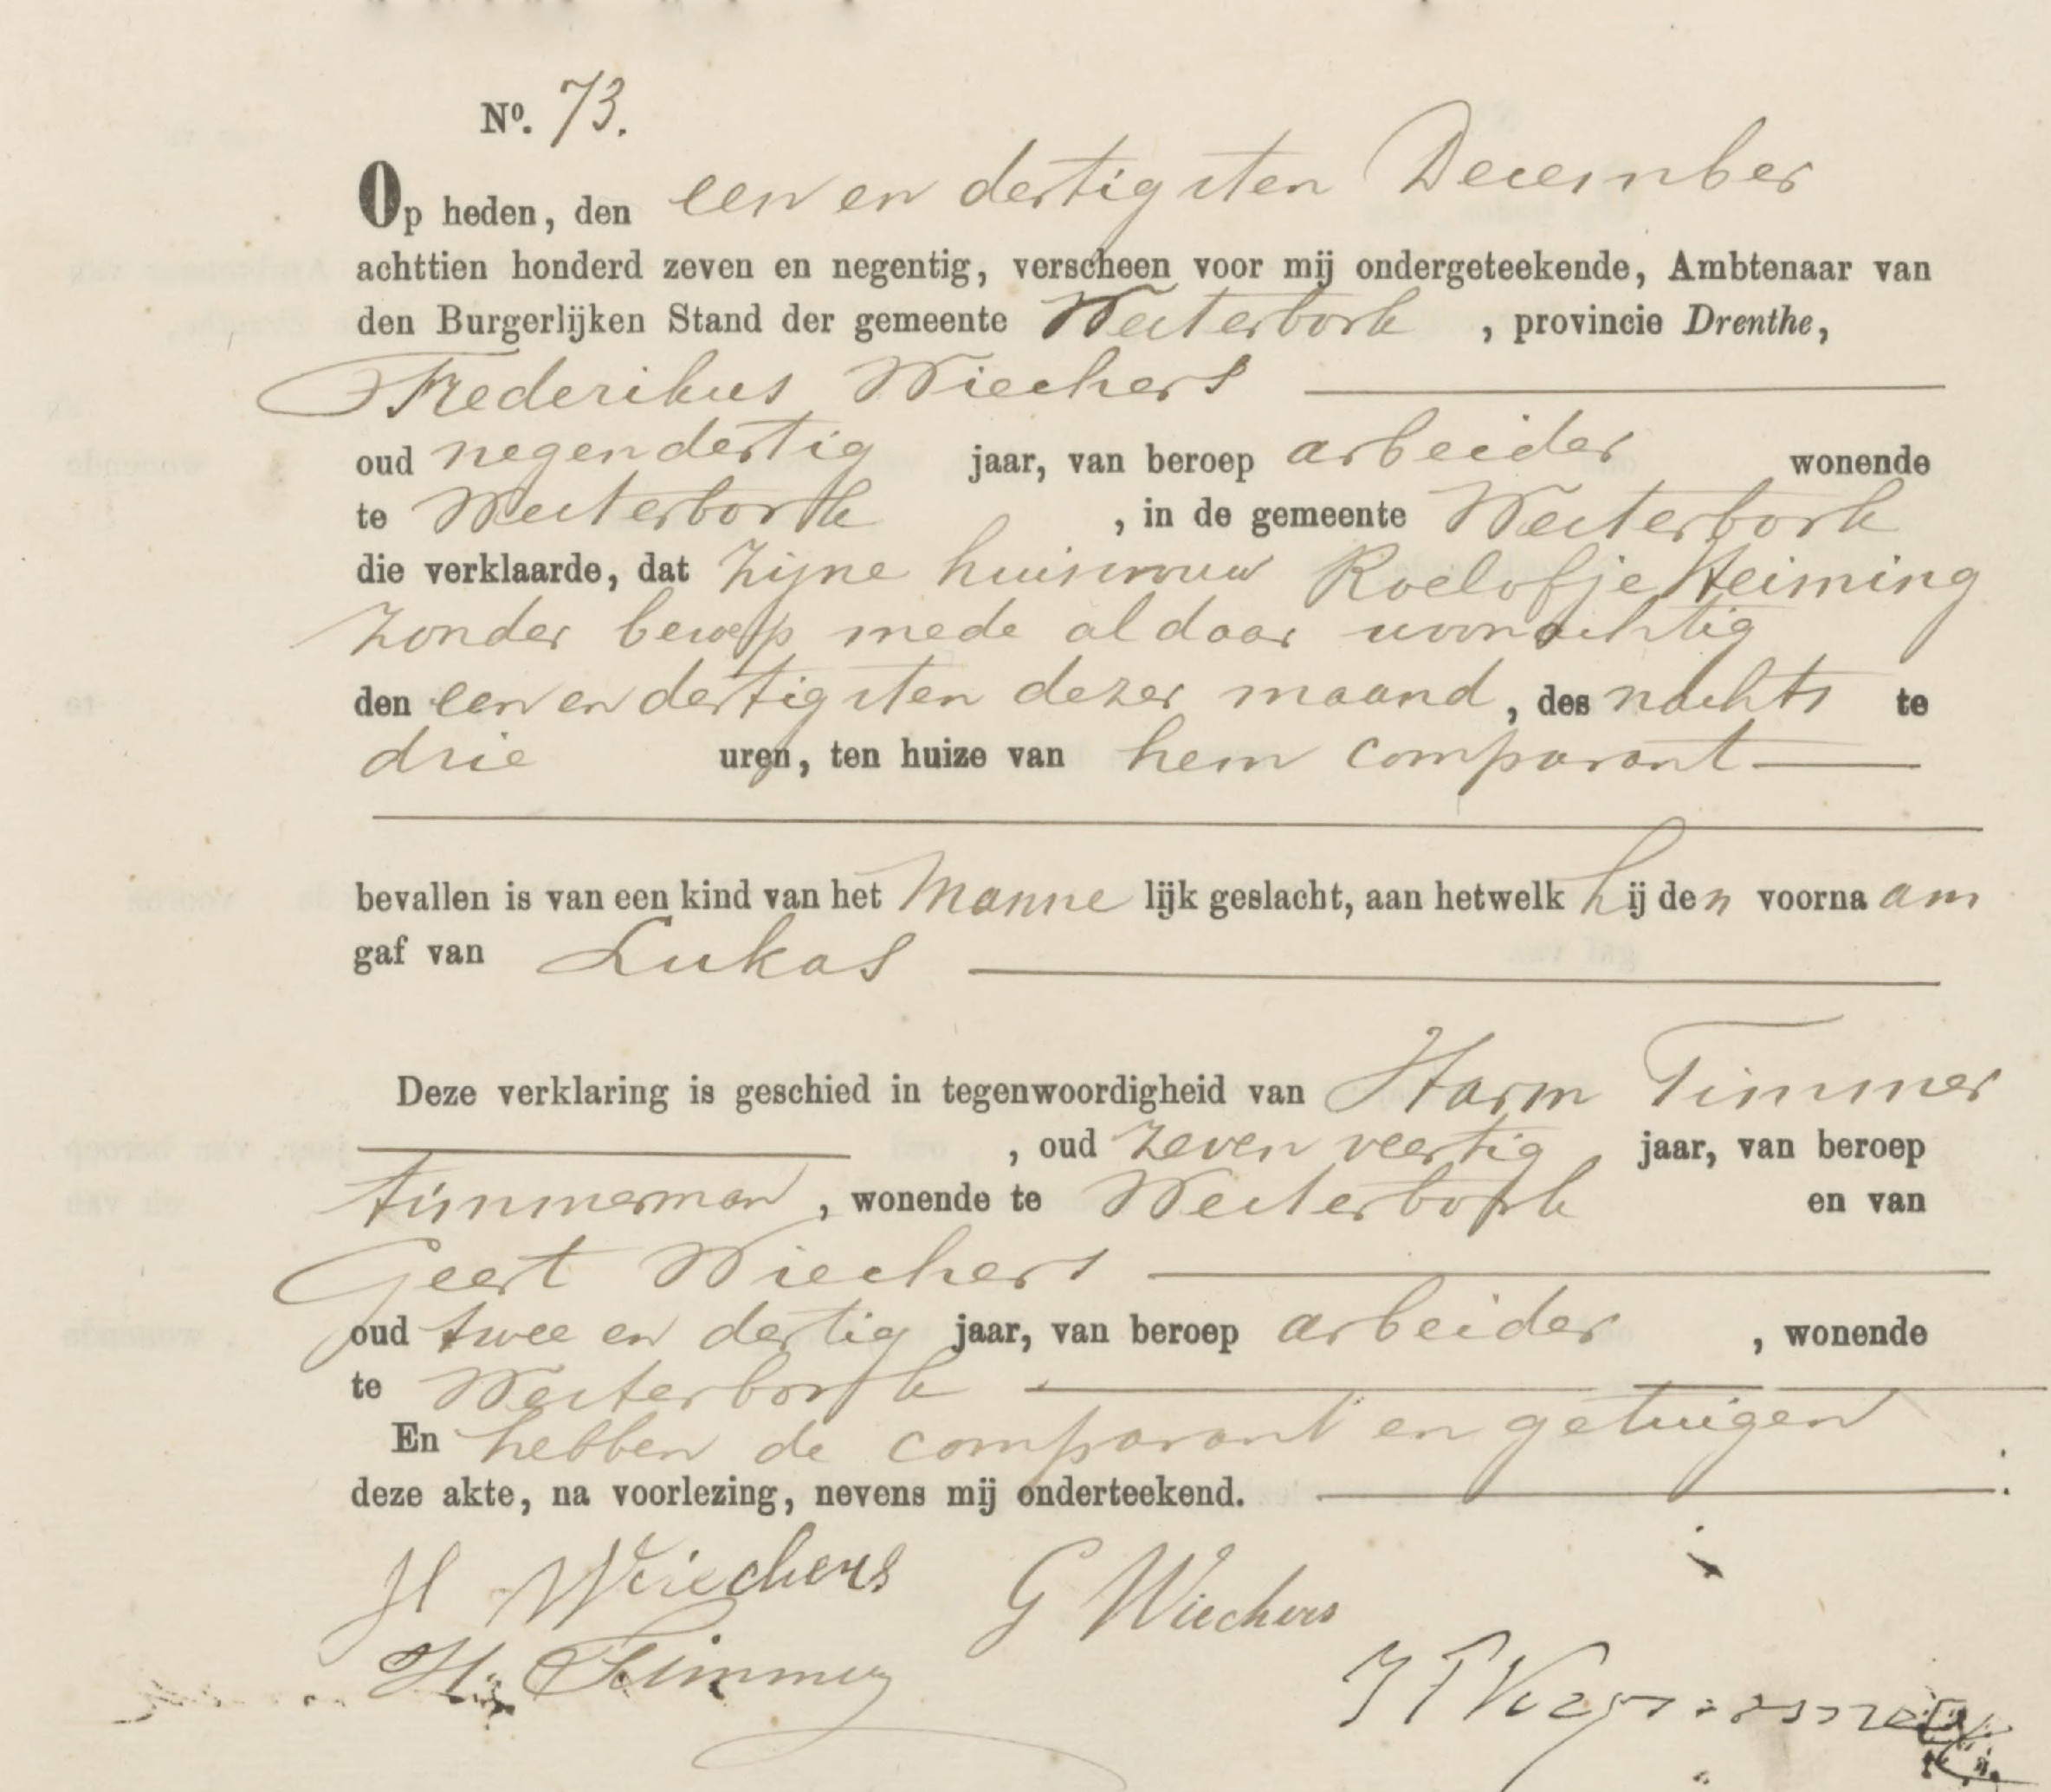 No. 73.
Op heden, den een en dertigsten December
achttien honderd zeven en negentig, verscheen voor mij ondergeteekende, Ambtenaar van
den Burgerlijken Stand der gemeente Westerbork , provincie Drenthe,
Frederikus Wiechers
oud negendertig jaar, van beroep arbeider wonende
te Westerbork , in de gemeente Westerbork
die verklaarde, dat zijne huisvrouw Roelofje Heiming
zonder beroep mede aldaar woonachtig
den een en dertigsten dezer maand, des nachts te
drie uren, ten huize van hem comparant
bevallen is van een kind van het Mannelijk geslacht, aan hetwelk hij den voornaam
gaf van Lukas
Deze verklaring is geschied in tegenwoordigheid van Harm Timmer
, oud zeven veertig jaar, van beroep
timmerman, wonende te Westerbork en van
Geert Wiechers
oud twee en dertig jaar, van beroep arbeider , wonende
te Westerbork
En hebben de comparant en getuigen
deze akte, na voorlezing, nevens mij onderteekend.
Wiechers G Wiechers
H. Timmer